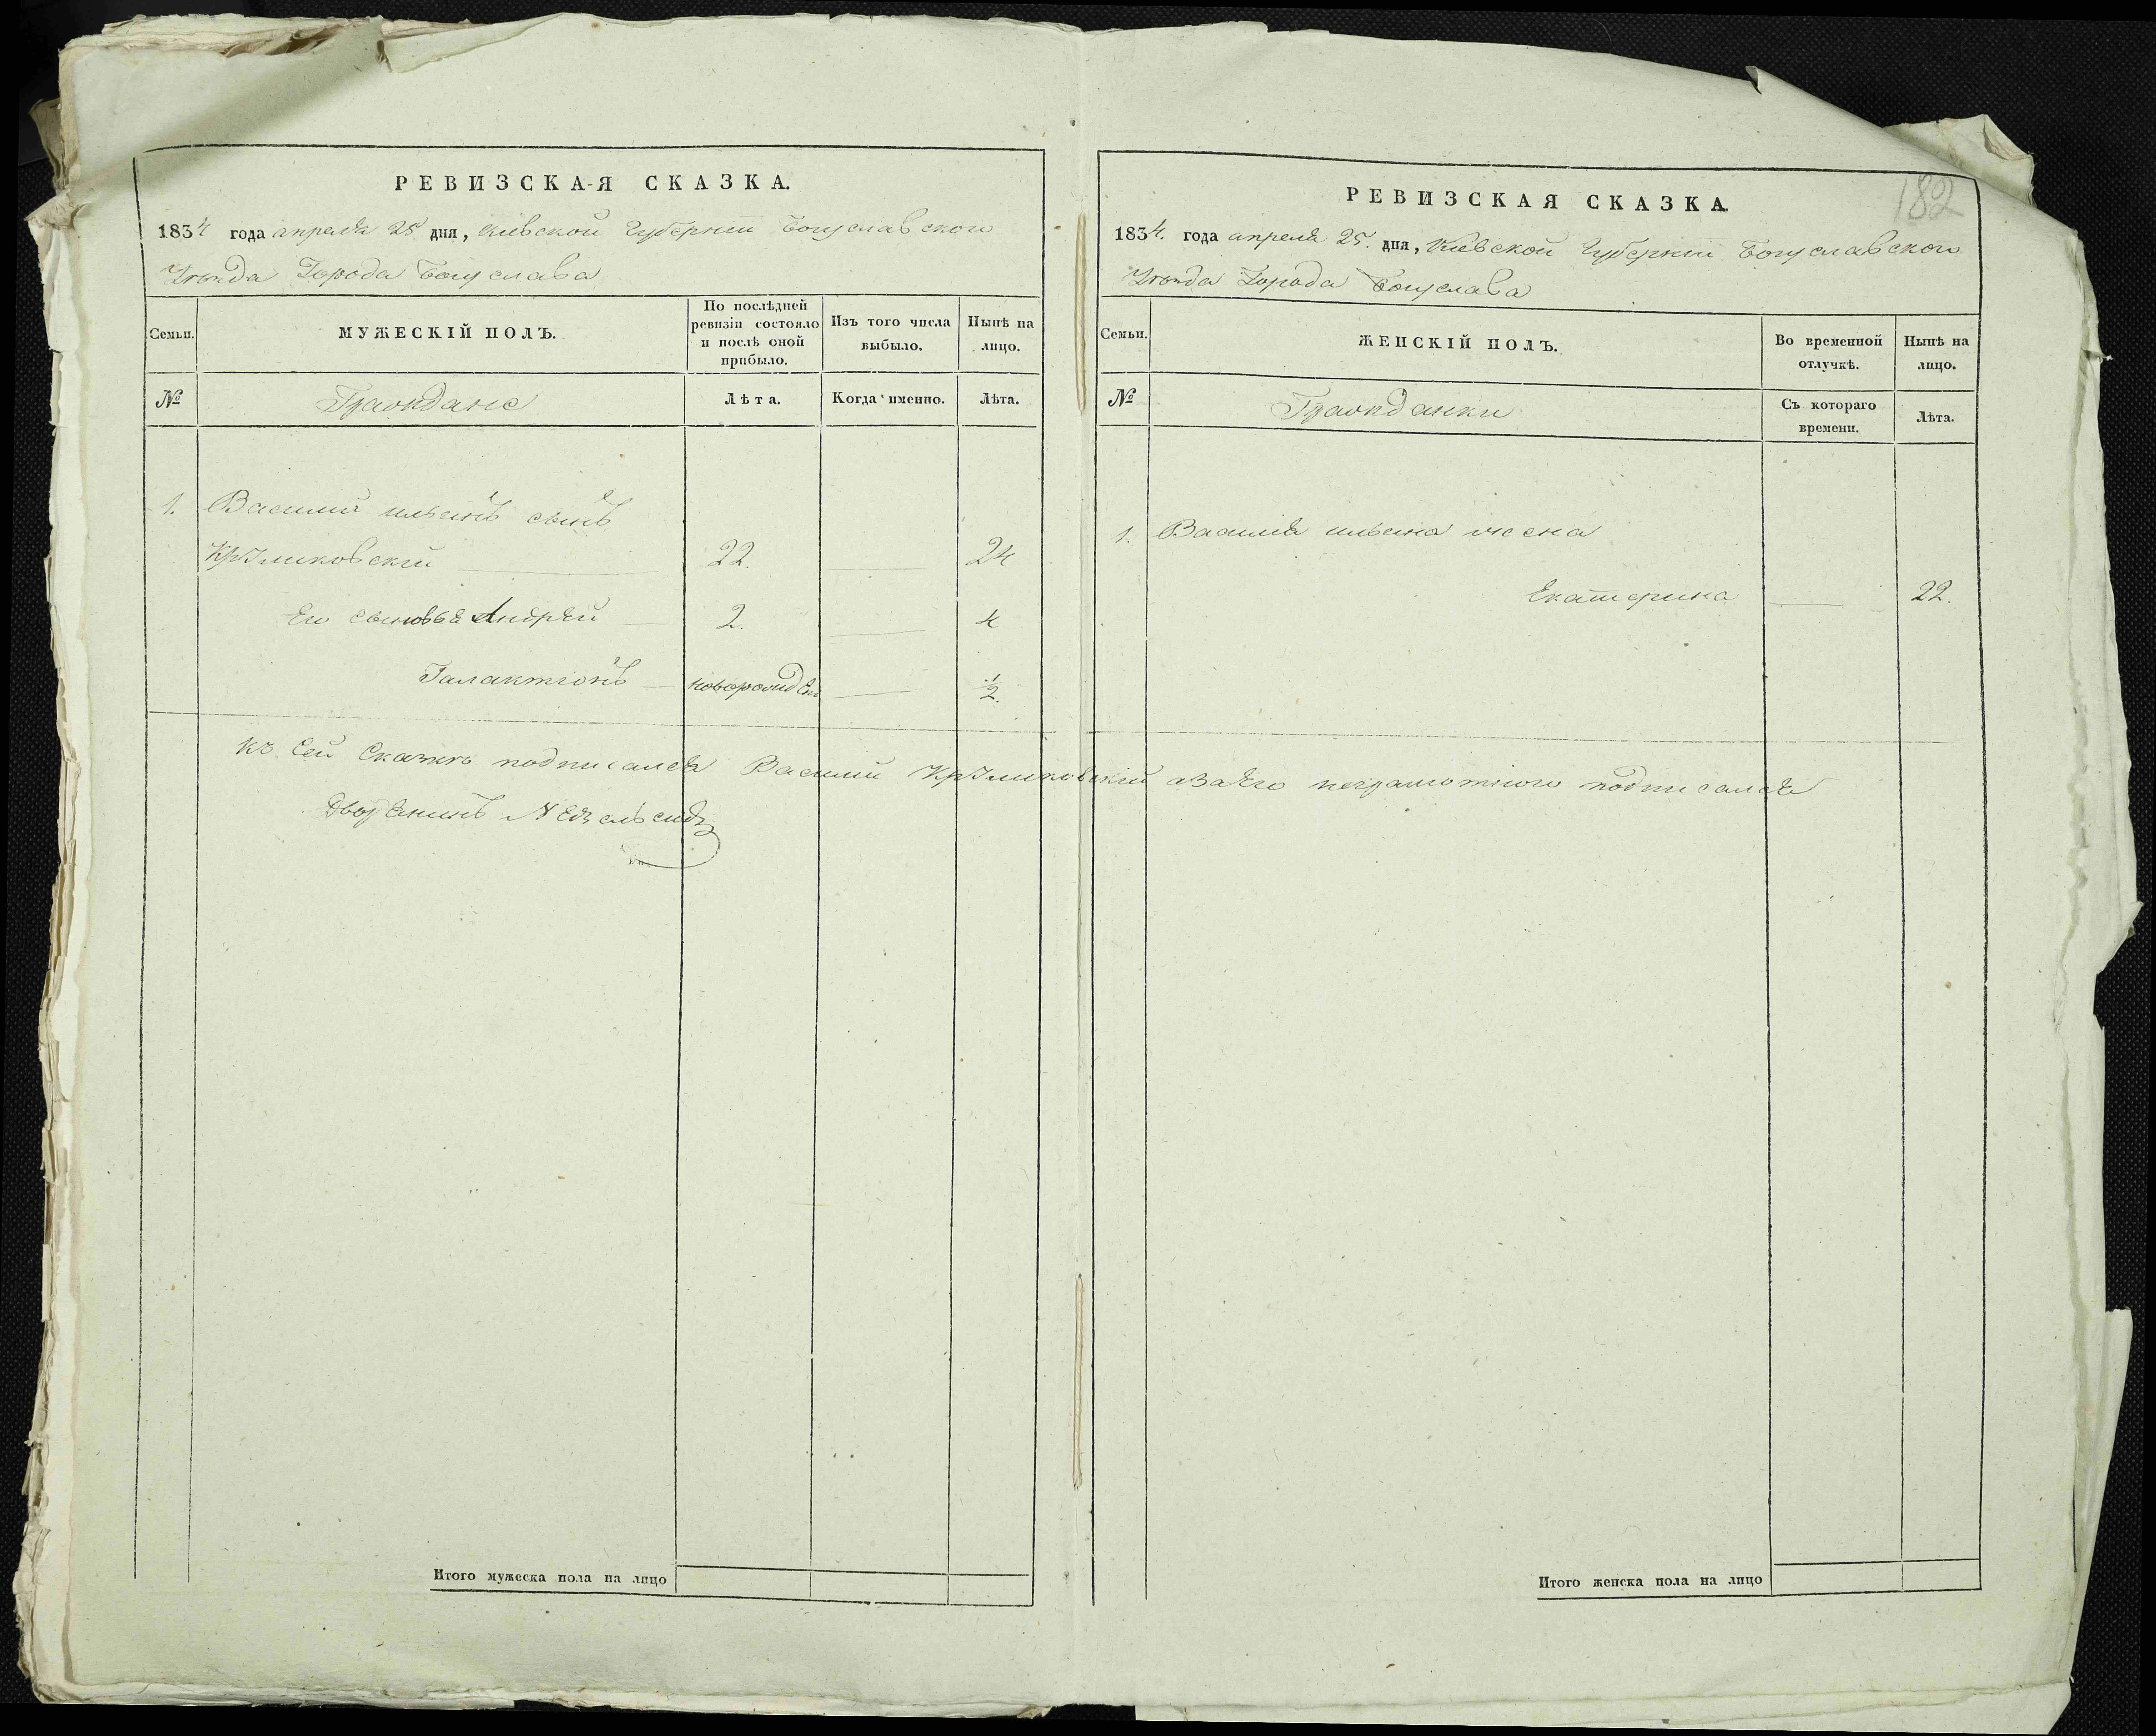 РЕВИЗСКАЯ СКАЗКА.
1834 года апреля 25 дня, Киевской Губернии Богуславского
Уезда Города Богуслава
Семьи.
МУЖЕСКІЙ ПОЛЪ.
По послѣдней ревизіи состояло и послѣ оной прибыло.
Изъ того числа выбыло.
Нынѣ на лицо.
№
Граждане
Лѣта.
Когда именно.
Лѣта.
1. Василий ильинъ сынъ
22. 24
Его сыновья Андрей 2. 4
Галактіонъ новорожден 1/2.
Къ сей Сказкѣ подписался Василий а за его неграмотного подписался
Дворянинъ
Итого мужеска пола на лицо
182
РЕВИЗСКАЯ СКАЗКА.
1834. года апреля 25. дня, Кіевской Губерніи Богуславского
Уезда Города Богуслава
Семьи.
ЖЕНСКІЙ ПОЛЪ.
Во временной отлучкѣ.
Нынѣ на лицо.
№
Гражданки
Съ котораго времени.
Лѣта.
1. Василія ильина жена
Екатерина 22.
Итого женска пола на лицо